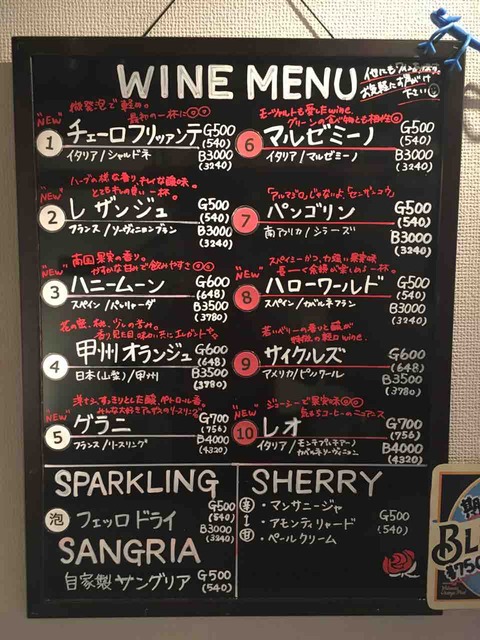 WINE MENU
他にもワインあります。
お気軽にお声がけ
下さい
微発泡で軽め。
最初の一杯に◎◎
"NEW"
1 チェーロフリッツァンテ G500
(540)
イタリア/シャルドネ B3000
(3240)
とてもキレの良い一杯。
2 レ ザンジュ G500
(540)
フランス/ソーヴィニヨンブラン B3000
(3240)
南国果実の香り。
"NEW" かすかな甘みで飲みやすさ◎◎
3 ハニームーン G600
(648)
スペイン/パレリャーダ B3500
(3780)
4 甲州オランジュ G600
(648)
日本(山梨)/甲州 B3500
(3780)
"NEW"
5 グラニ G700
(756)
フランス/リースリング B4000
(4320)
モーツァルトも愛したwine。
"NEW" グリーンの食べ物とも相性◎
6 マルゼミーノ G500
(540)
イタリア/マルゼミーノ B3000
(3240)
「アルマジロ」じゃないよ、「センザンコウ」
7 パンゴリン G500
(540)
南アフリカ/シラーズ B3000
(3240)
スパイシーかつ、力強い果実味
"NEW" 長ーく余韻が楽しめる一杯。
8 ハローワールド G500
(540)
スペイン/カベルネフラン B3000
(3240)
若いベリーの香りと酸が
特徴の軽口wine.
9 サイクルズ G600
(648)
アメリカ/ピノノワール B3500
(3780)
ジューシーで果実味◎◎
"NEW" 気もちコーヒーのニュアンス
10 レオ G700
(756)
イタリア/モンテプルチアーノ B4000
カベルネソーヴィニヨン (4320)
SPARKLING
泡 フェッロ ドライ G500
(540)
B3000
(3240)
SANGRIA
自家製サングリア G500
(540)
SHERRY
辛 ・マンサニージャ
↕ ・アモンティリャード G500
甘 ・ペールクリーム (540)
期
BL
¥750